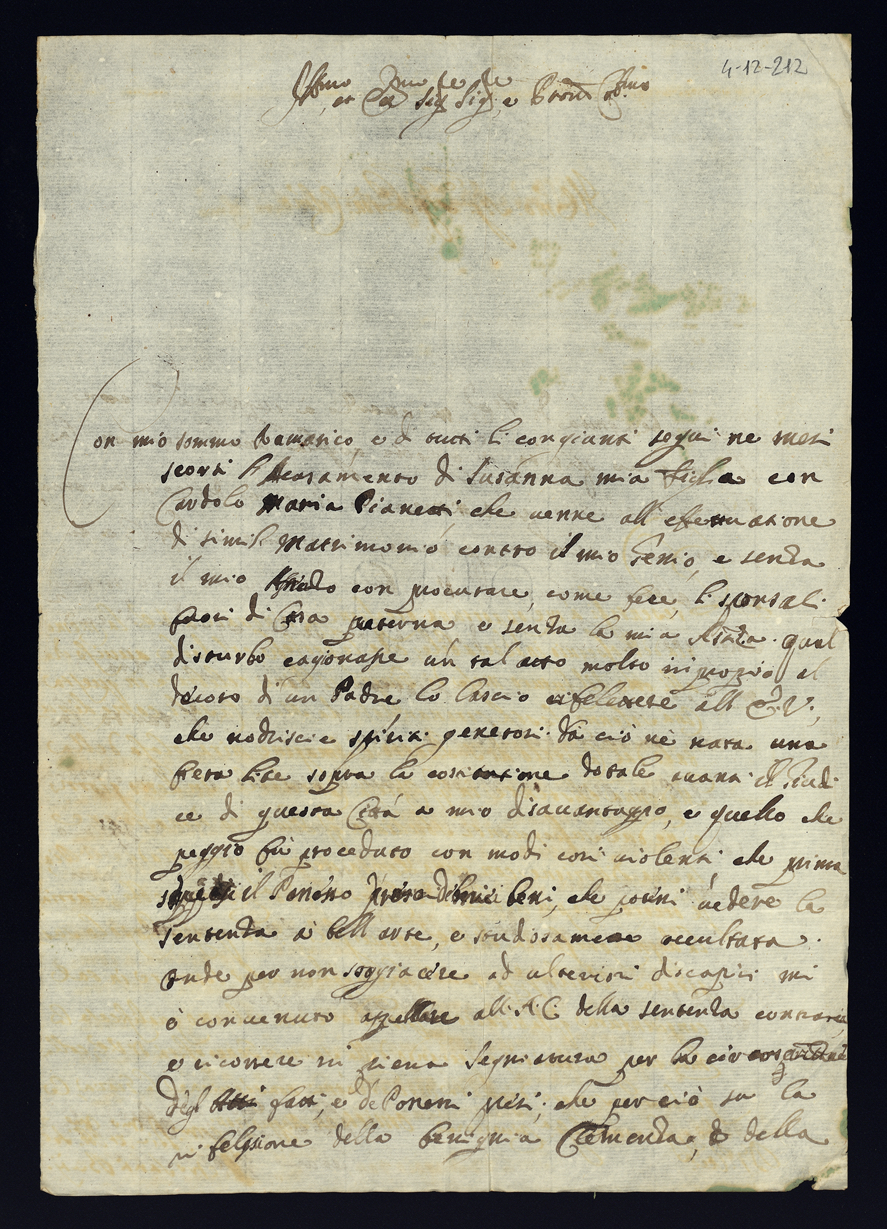 4-12-212
Illmo, et Sig. Sig. e Pron Colmo
Con mio sommo ramarico, e di tutti li congiunti seguì ne mesi
scorsi l'Accasamento di Susanna mia figlia con
Cardolo Maria Pianetti, che venne all'effettuatione
di simil Matrimonio contro il mio Genio, e senza
il mio con procurare, come fece, li sponsali
fuori di Casa paterna e senza la mia qual
disturbo cagionasse un tal atto molto improprio al
decoro di un Padre lo lascio riflettere all' E.V.,
che nodrisce spiriti generosi. Da ciò nè nata una
fiera lite sopra la costitutione dotale avanti il Giudi
ce di questa Città a mio disavantaggio, e quello che
peggio fù proceduto con modi così violenti, che prima
il beni, che potessi vedere la
sentenza à bell'arte, e studiosamente occultata.
Onde per non soggiacere ad ulteriori discapiti mi
è convenuto appellare all'A.C. della sentenza contraria
e ricorrere in piena Segnatura per la
degl' Atti fatti, e de Ponessi presi; che perciò su la
riflessione della benignia Clemenza, e della